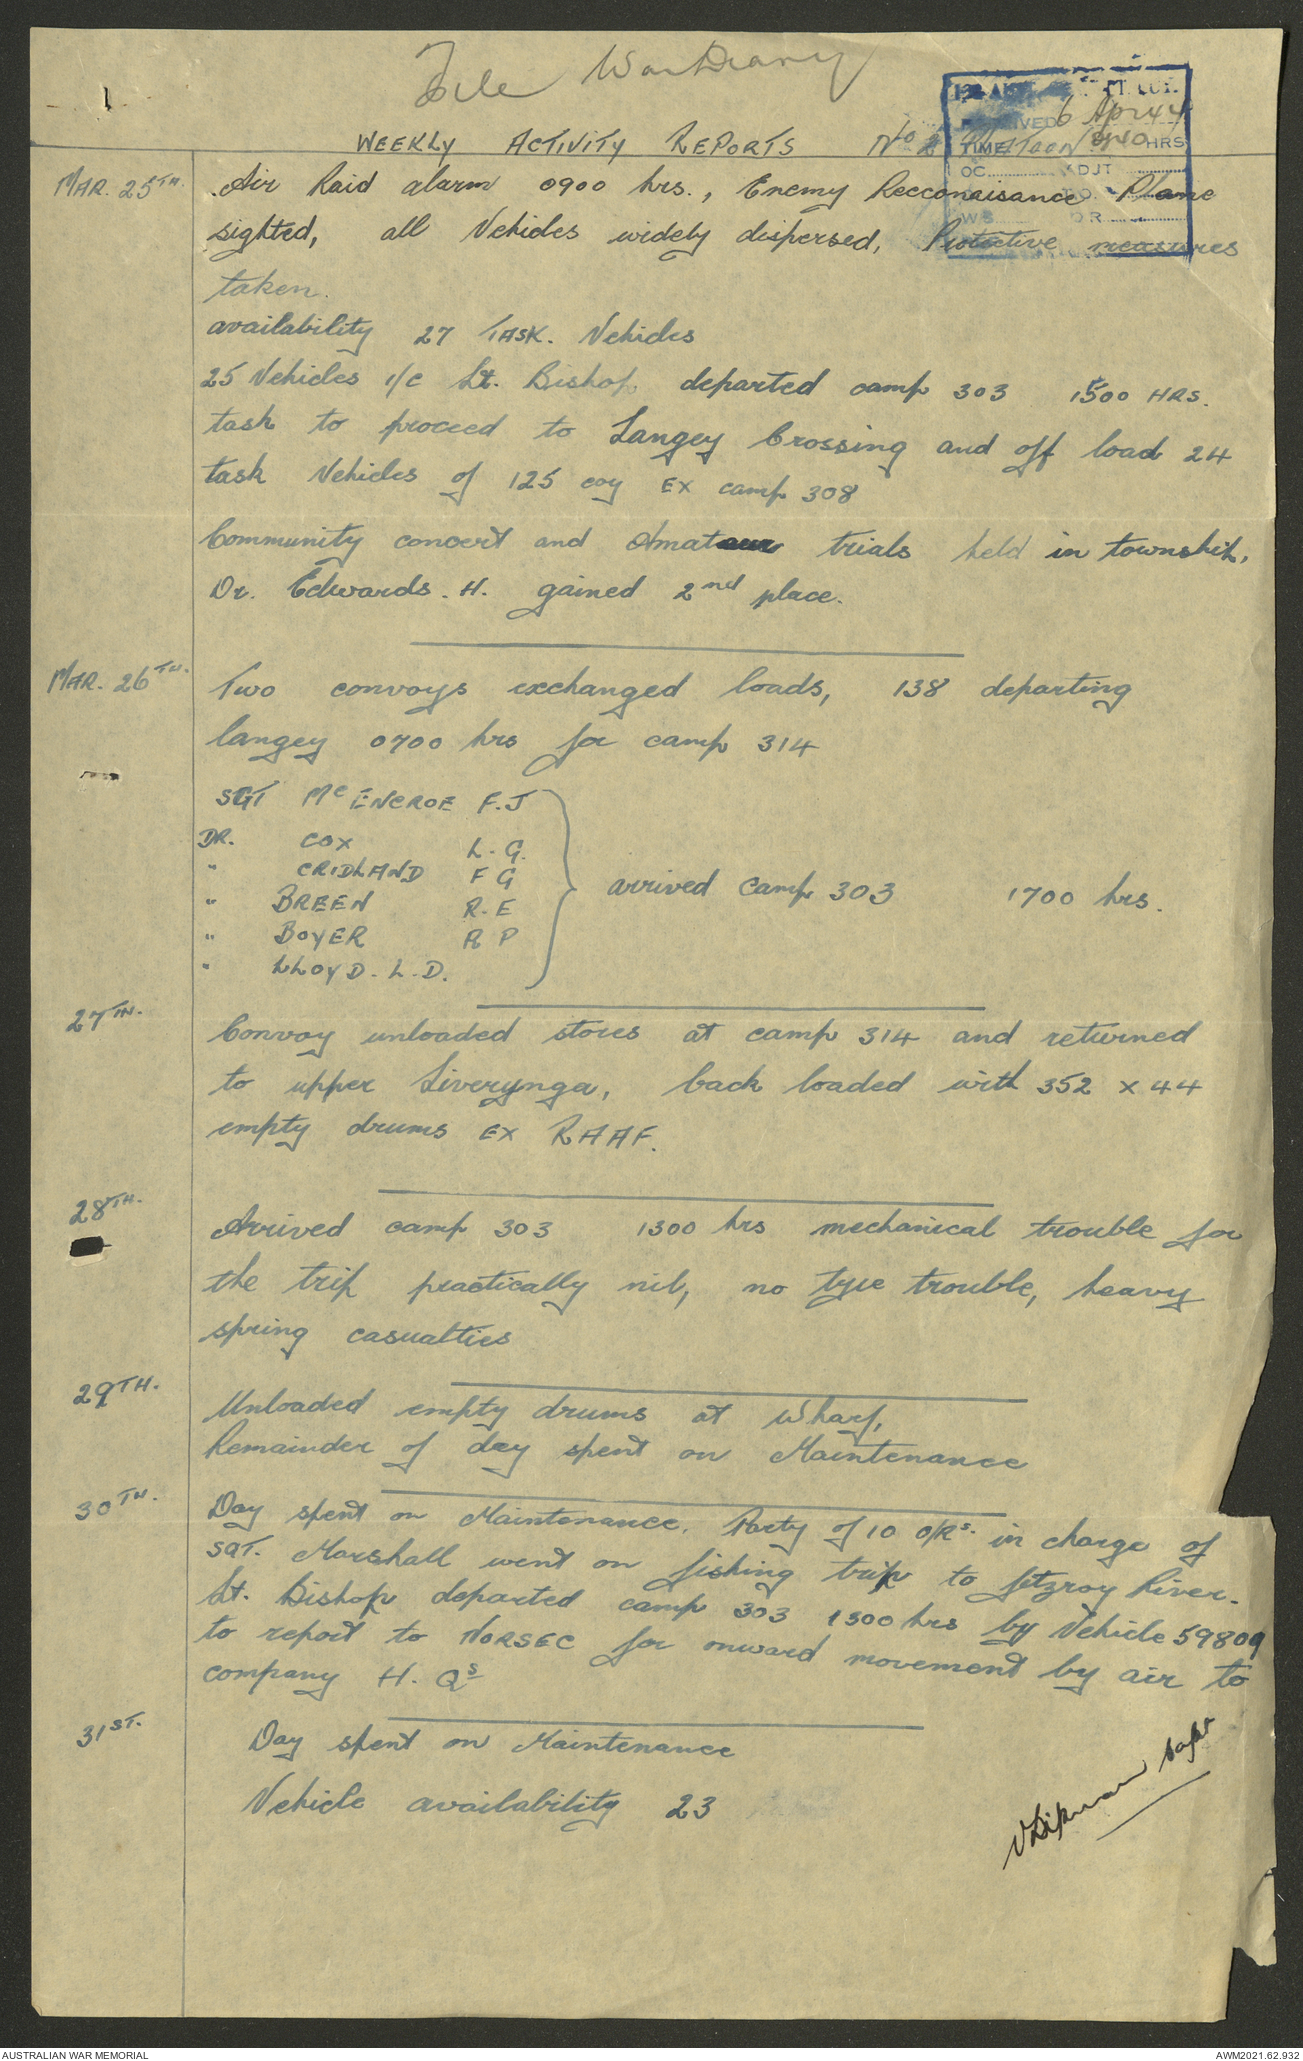 File War Diary
WEEKLY ACTIVITY REPORTS No 2 PLATOON
RECEIVED 6 Apr 44
TIME 0940 HRS
OC ADJT
MAR. 25TH. Air Raid alarm 0900 hrs., Enemy Recconaisance Plane
sighted, all Vehicles widely dispersed, Protective measures
taken.
availability 27 TASK. Vehicles
25 Vehicles i/c Lt. Bishop departed camp 303 1500 HRS.
task to proceed to Langey Crossing and off load 24
task Vehicles of 125 coy EX camp 308
Community concert and Amateur trials held in township.
Dr. Edwards. H. gained 2nd place.
MAR. 26TH. Two convoys exchanged loads, 138 departing
langey 0700 hrs for camp 314
SGT McENCROE F.J
DR. COX L.G.
" CRIDLAND F G
" BREEN R.E
" BOYER R P
" LLOYD. L.D.
arrived camp 303 1700 hrs.
27TH. Convoy unloaded stores at camp 314 and returned
to upper Liverynga, back loaded with 352 x 44
empty drums EX RAAF.
28TH. Arrived camp 303 1300 hrs mechanical trouble for
the trip practically nil, no tyre trouble, heavy
spring casualties
29TH. Unloaded empty drums at Wharf,
Remainder of day spent on Maintenance
30TH. Day spent on Maintenance. Party of 10 O/Rs. in charge of
SGT. Marshall went on fishing trip to fitzroy River.
Lt. Bishop departed camp 303 1300 hrs by Vehicle 59809
to report to NORSEC for onward movement by air to
company H. Qs
31ST. Day spent on Maintenance
Vehicle availability 23
Capt
AUSTRALIAN WAR MEMORIAL
AWM2021.62.932